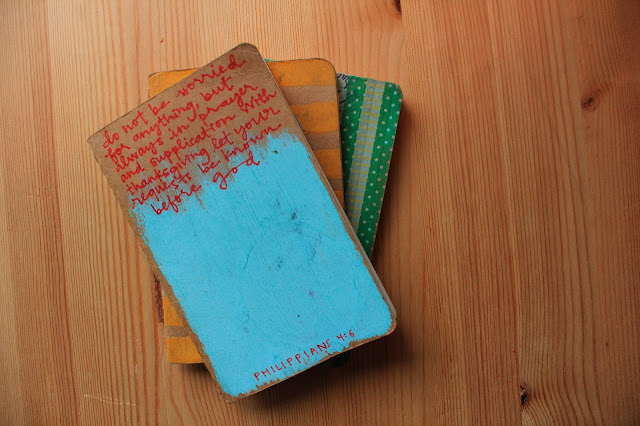 do not be worried
for anything, but
always in prayer
and supplication with
thanksgiving let your
requests be known
before god
PHILIPPIANS 4:6